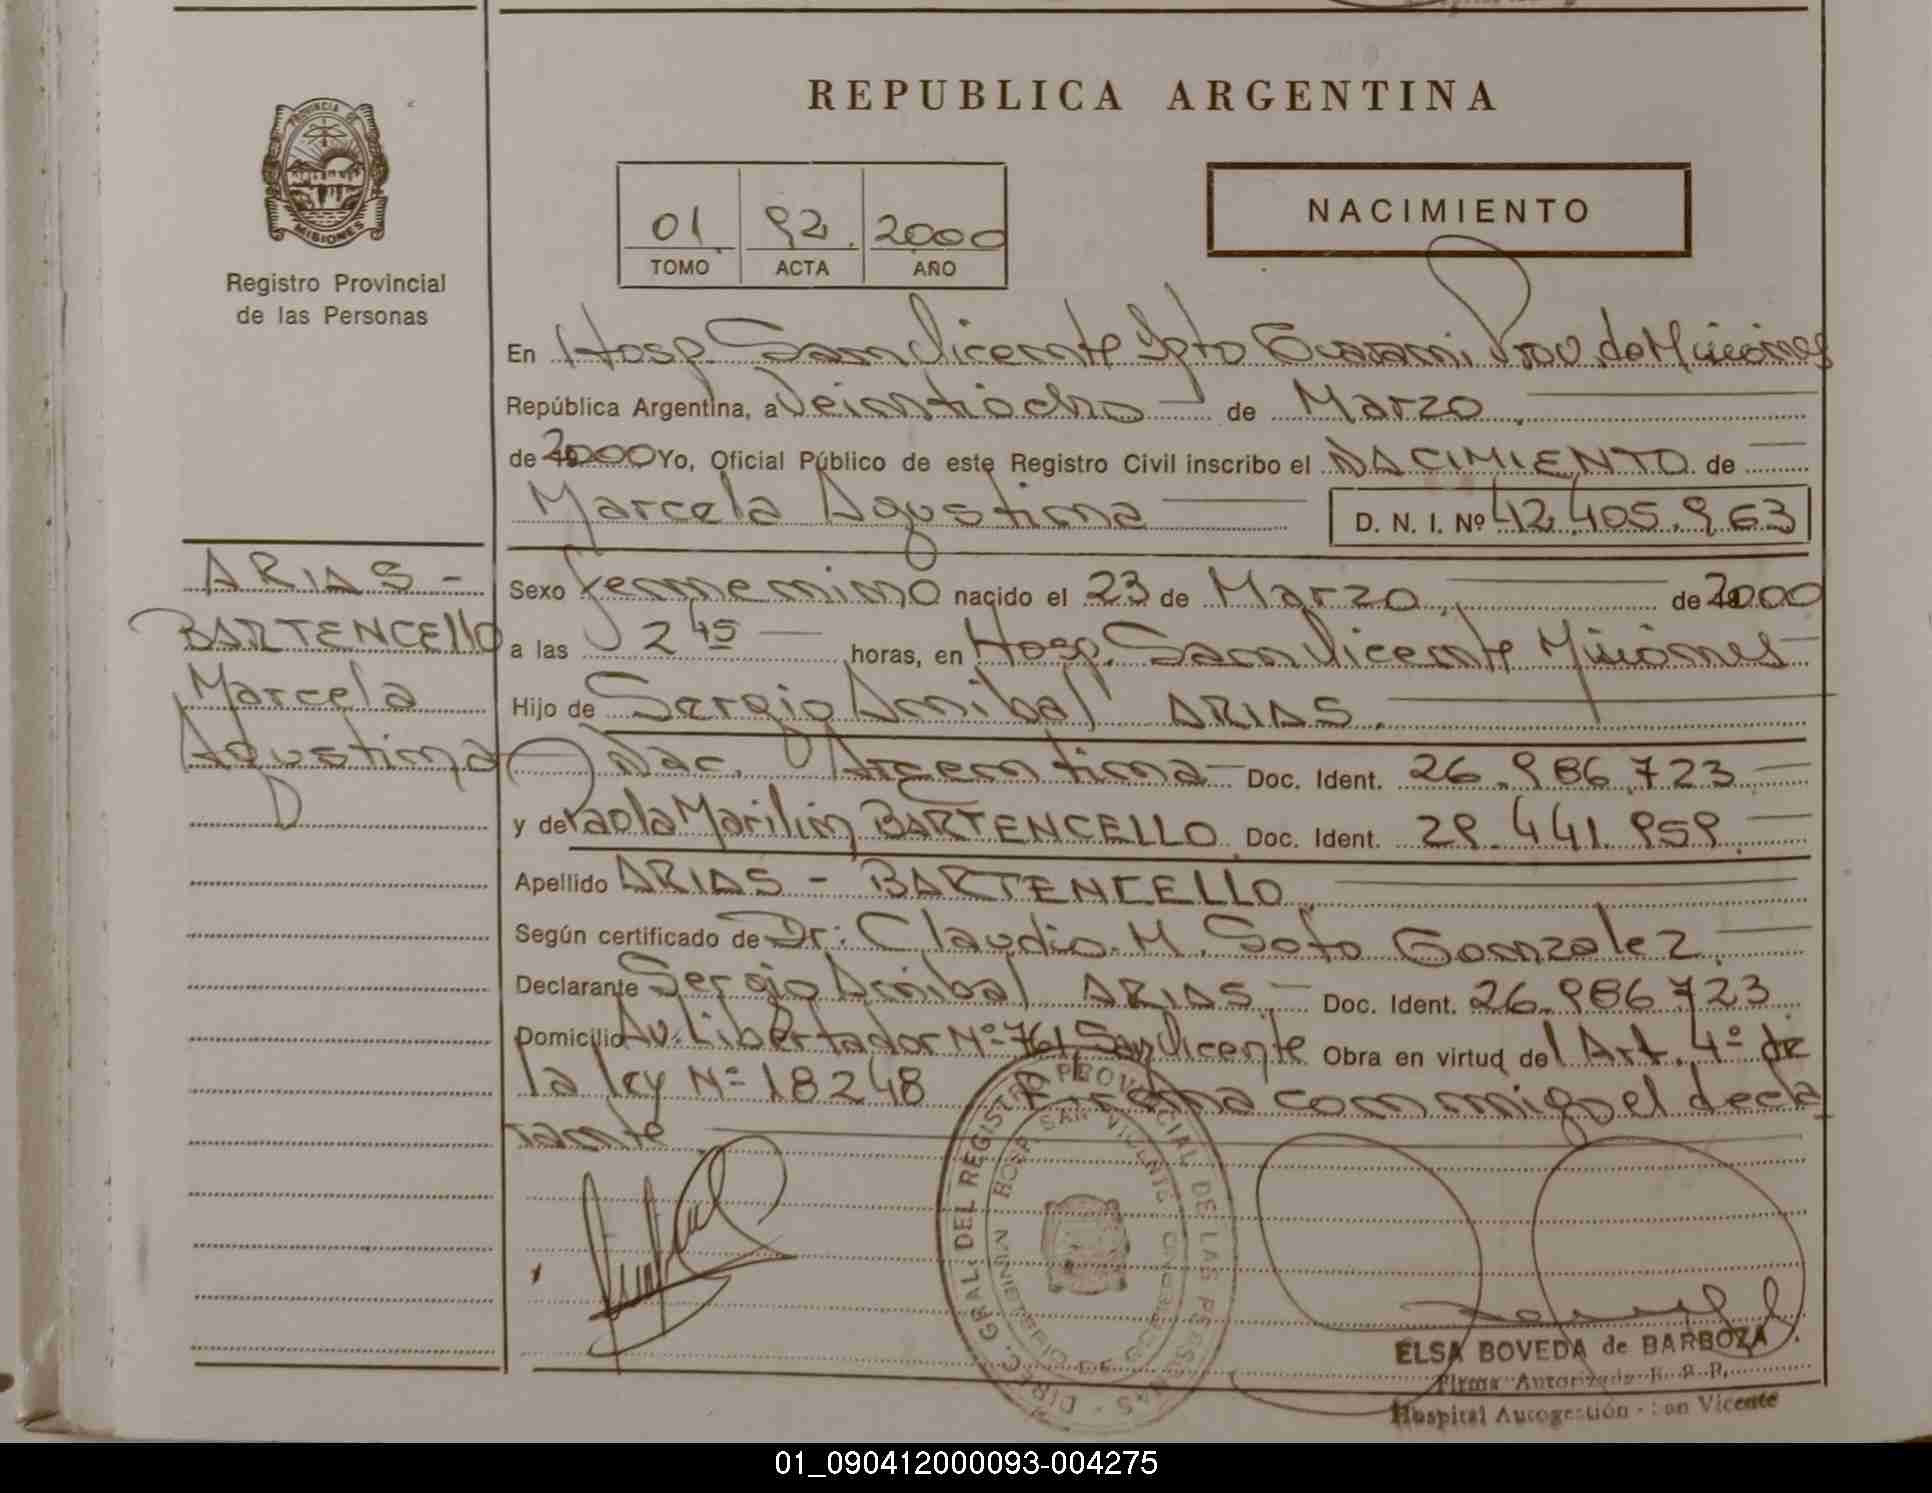 REPUBLICA ARGENTINA
PROVINCIA DE
MISIONES
Registro Provincial
de las Personas
01 92 2000
TOMO ACTA AÑO
NACIMIENTO
En Hosp. San Vicente Dpto Guarani Prov. de Misiones
República Argentina, a Veintiocho de Marzo
de 2000 Yo, Oficial Público de este Registro Civil inscribo el NACIMIENTO de
Marcela Agustina D. N. I. Nº 42.405.963
ARIAS -
BARTENCELLO
Marcela
Agustina
Sexo femenino nacido el 23 de Marzo de 2000
a las 2 45 horas, en Hosp. San Vicente Misiones
Hijo de Sergio Anibal ARIAS.
Nac. Argentina Doc. Ident. 26.986.723
y de Paola Marilin BARTENCELLO Doc. Ident. 29.441.959
Apellido ARIAS - BARTENCELLO
Según certificado de Dr: Claudio M. Soto Gonzalez
Declarante Sergio Anibal ARIAS Doc. Ident. 26.986.723
Domicilio Av. Libertador Nº 761 San Vicente Obra en virtud del Art. 4º de
la ley Nº 18248 Firma conmigo el decla
rante
DIREC. GRAL. DEL REGISTRO PROVINCIAL DE LAS PERSONAS
HOSP. SAN VICENTE
ELSA BOVEDA de BARBOZA
Firma Autorizada R. P. P.
Hospital Autogestión - San Vicente
01_090412000093-004275